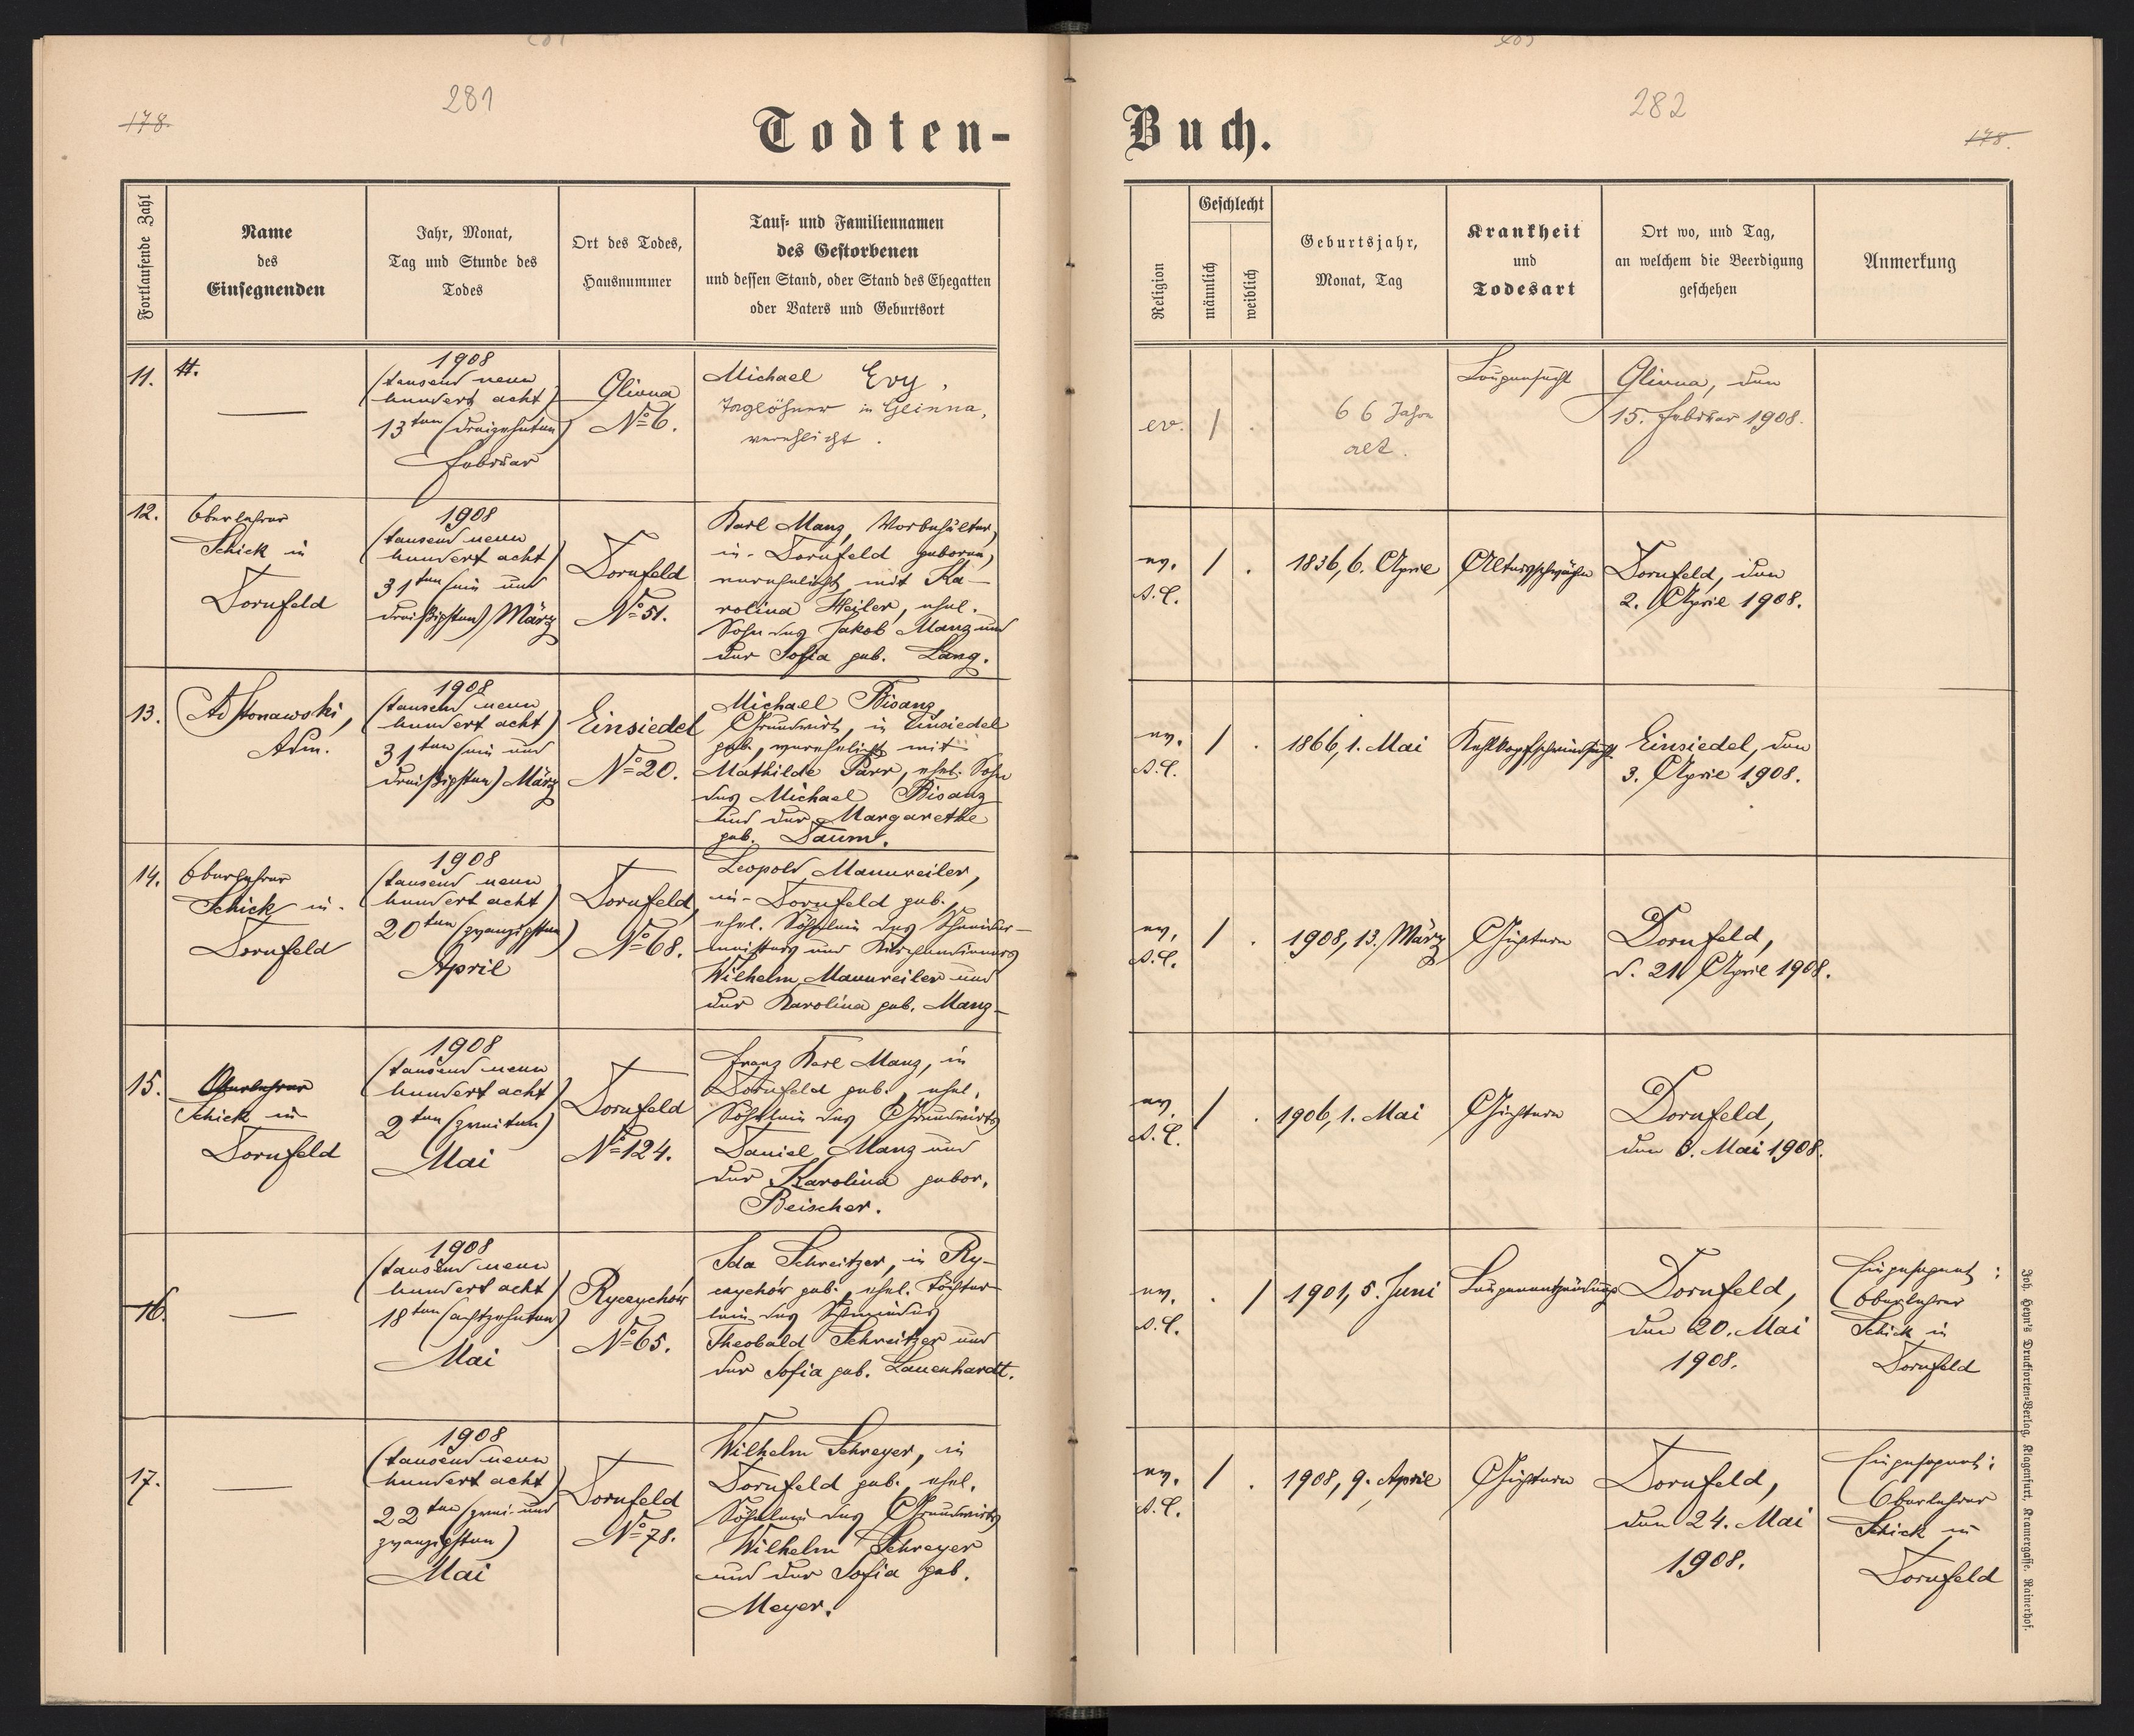 281
178.
Todten-
Fortlaufende Zahl
Name
des
Einsegnenden
Jahr, Monat,
Tag und Stunde des
Todes
Ort des Todes,
Hausnummer
Tauf- und Familiennamen
des Gestorbenen
und dessen Stand, oder Stand des Ehegatten
oder Vaters und Geburtsort
11.
1908
(tausend neun
hundert acht)
13ten (dreizehnten)
Februar
Glinna
No 6.
Michael Ery,
Taglöhner in Glinna,
verehlicht.
12.
Oberlehrer
Schick in
Dornfeld
1908
(tausend neun
hundert acht)
31ten (ein und
dreißigsten) März
Dornfeld
No 51.
Karl Manz, Vorbehälter,
in Dornfeld geboren,
verehelicht mit Ka-
rolina Heiler, ehel.
Sohn des Jakob Manz und
der Sofia geb. Lang.
13.
Adm.
1908
(tausend neun
hundert acht)
31ten (ein und
dreißigsten) März
Einsiedel
No 20.
Michael Bisanz,
Grundwirt, in Einsiedel
geb., verehelicht mit
Mathilde Parr, ehel. Sohn
des Michael Bisanz
und der Margarethe
geb. Daum.
14.
Oberlehrer
Schick in
Dornfeld
1908
(tausend neun
hundert acht)
20ten (zwanzigsten)
April
Dornfeld,
No 68.
Leopold Mannweiler,
in Dornfeld geb.,
ehel. Söhnlein des Schneider-
meisters und Kirchendieners
Wilhelm Mannweiler und
der Karolina geb. Manz
15.
Oberlehrer
Schick in
Dornfeld
1908
(tausend neun
hundert acht)
2ten (zweiten)
Mai
Dornfeld
No 124.
Franz Karl Manz, in
Dornfeld geb., ehel.
Söhnlein des Grundwirts
Daniel Manz und
der Karolina gebor.
Beischer.
16.
1908
(tausend neun
hundert acht)
18ten (achtzehnten)
Mai
Ryczychów
No 65.
Ida Schweitzer, in Ry-
czychów geb., ehel. Töchter-
lein des Schmiedes
Theobald Schweitzer und
der Sofia geb. Lauenhardt.
17.
1908
(tausend neun
hundert acht)
22ten (zwei und
zwanzigsten)
Mai
Dornfeld
No 78.
Wilhelm Schreyer, in
Dornfeld geb., ehel.
Söhnlein des Grundwirts
Wilhelm Schreyer
und der Sofia geb.
Meyer.
282
178.
Buch.
Religion
Geschlecht
männlich
weiblich
Geburtsjahr,
Monat, Tag
Krankheit
und
Todesart
Ort wo, und Tag,
an welchem die Beerdigung
geschehen
Anmerkung
ev.
/ .
66 Jahre
alt.
Lungensucht
Glinna, den
15. Februar 1908.
ev.
A.C.
/ .
1836, 6. April
Altersschwäche
Dornfeld, den
2. April 1908.
ev.
A.C.
/ .
1866, 1. Mai
Kehlkopfschwindsucht
Einsiedel, den
3. April 1908.
ev.
A.C.
/ .
1908, 13. März
Gichtern
Dornfeld,
d. 21. April 1908.
ev.
A.C.
/ .
1906, 1. Mai
Gichtern
Dornfeld,
den 3. Mai 1908.
ev.
A.C.
. /
1901, 5. Juni
Lungenentzündung
Dornfeld,
den 20. Mai
1908.
Eingesegnet:
Oberlehrer
Schick in
Dornfeld
ev.
A.C.
/ .
1908, 9. April
Gichtern
Dornfeld,
den 24. Mai
1908.
Eingesegnet:
Oberlehrer
Schick in
Dornfeld
Joh. Heyn's Drucksorten-Verlag, Klagenfurt, Kramergasse, Rainerhof.